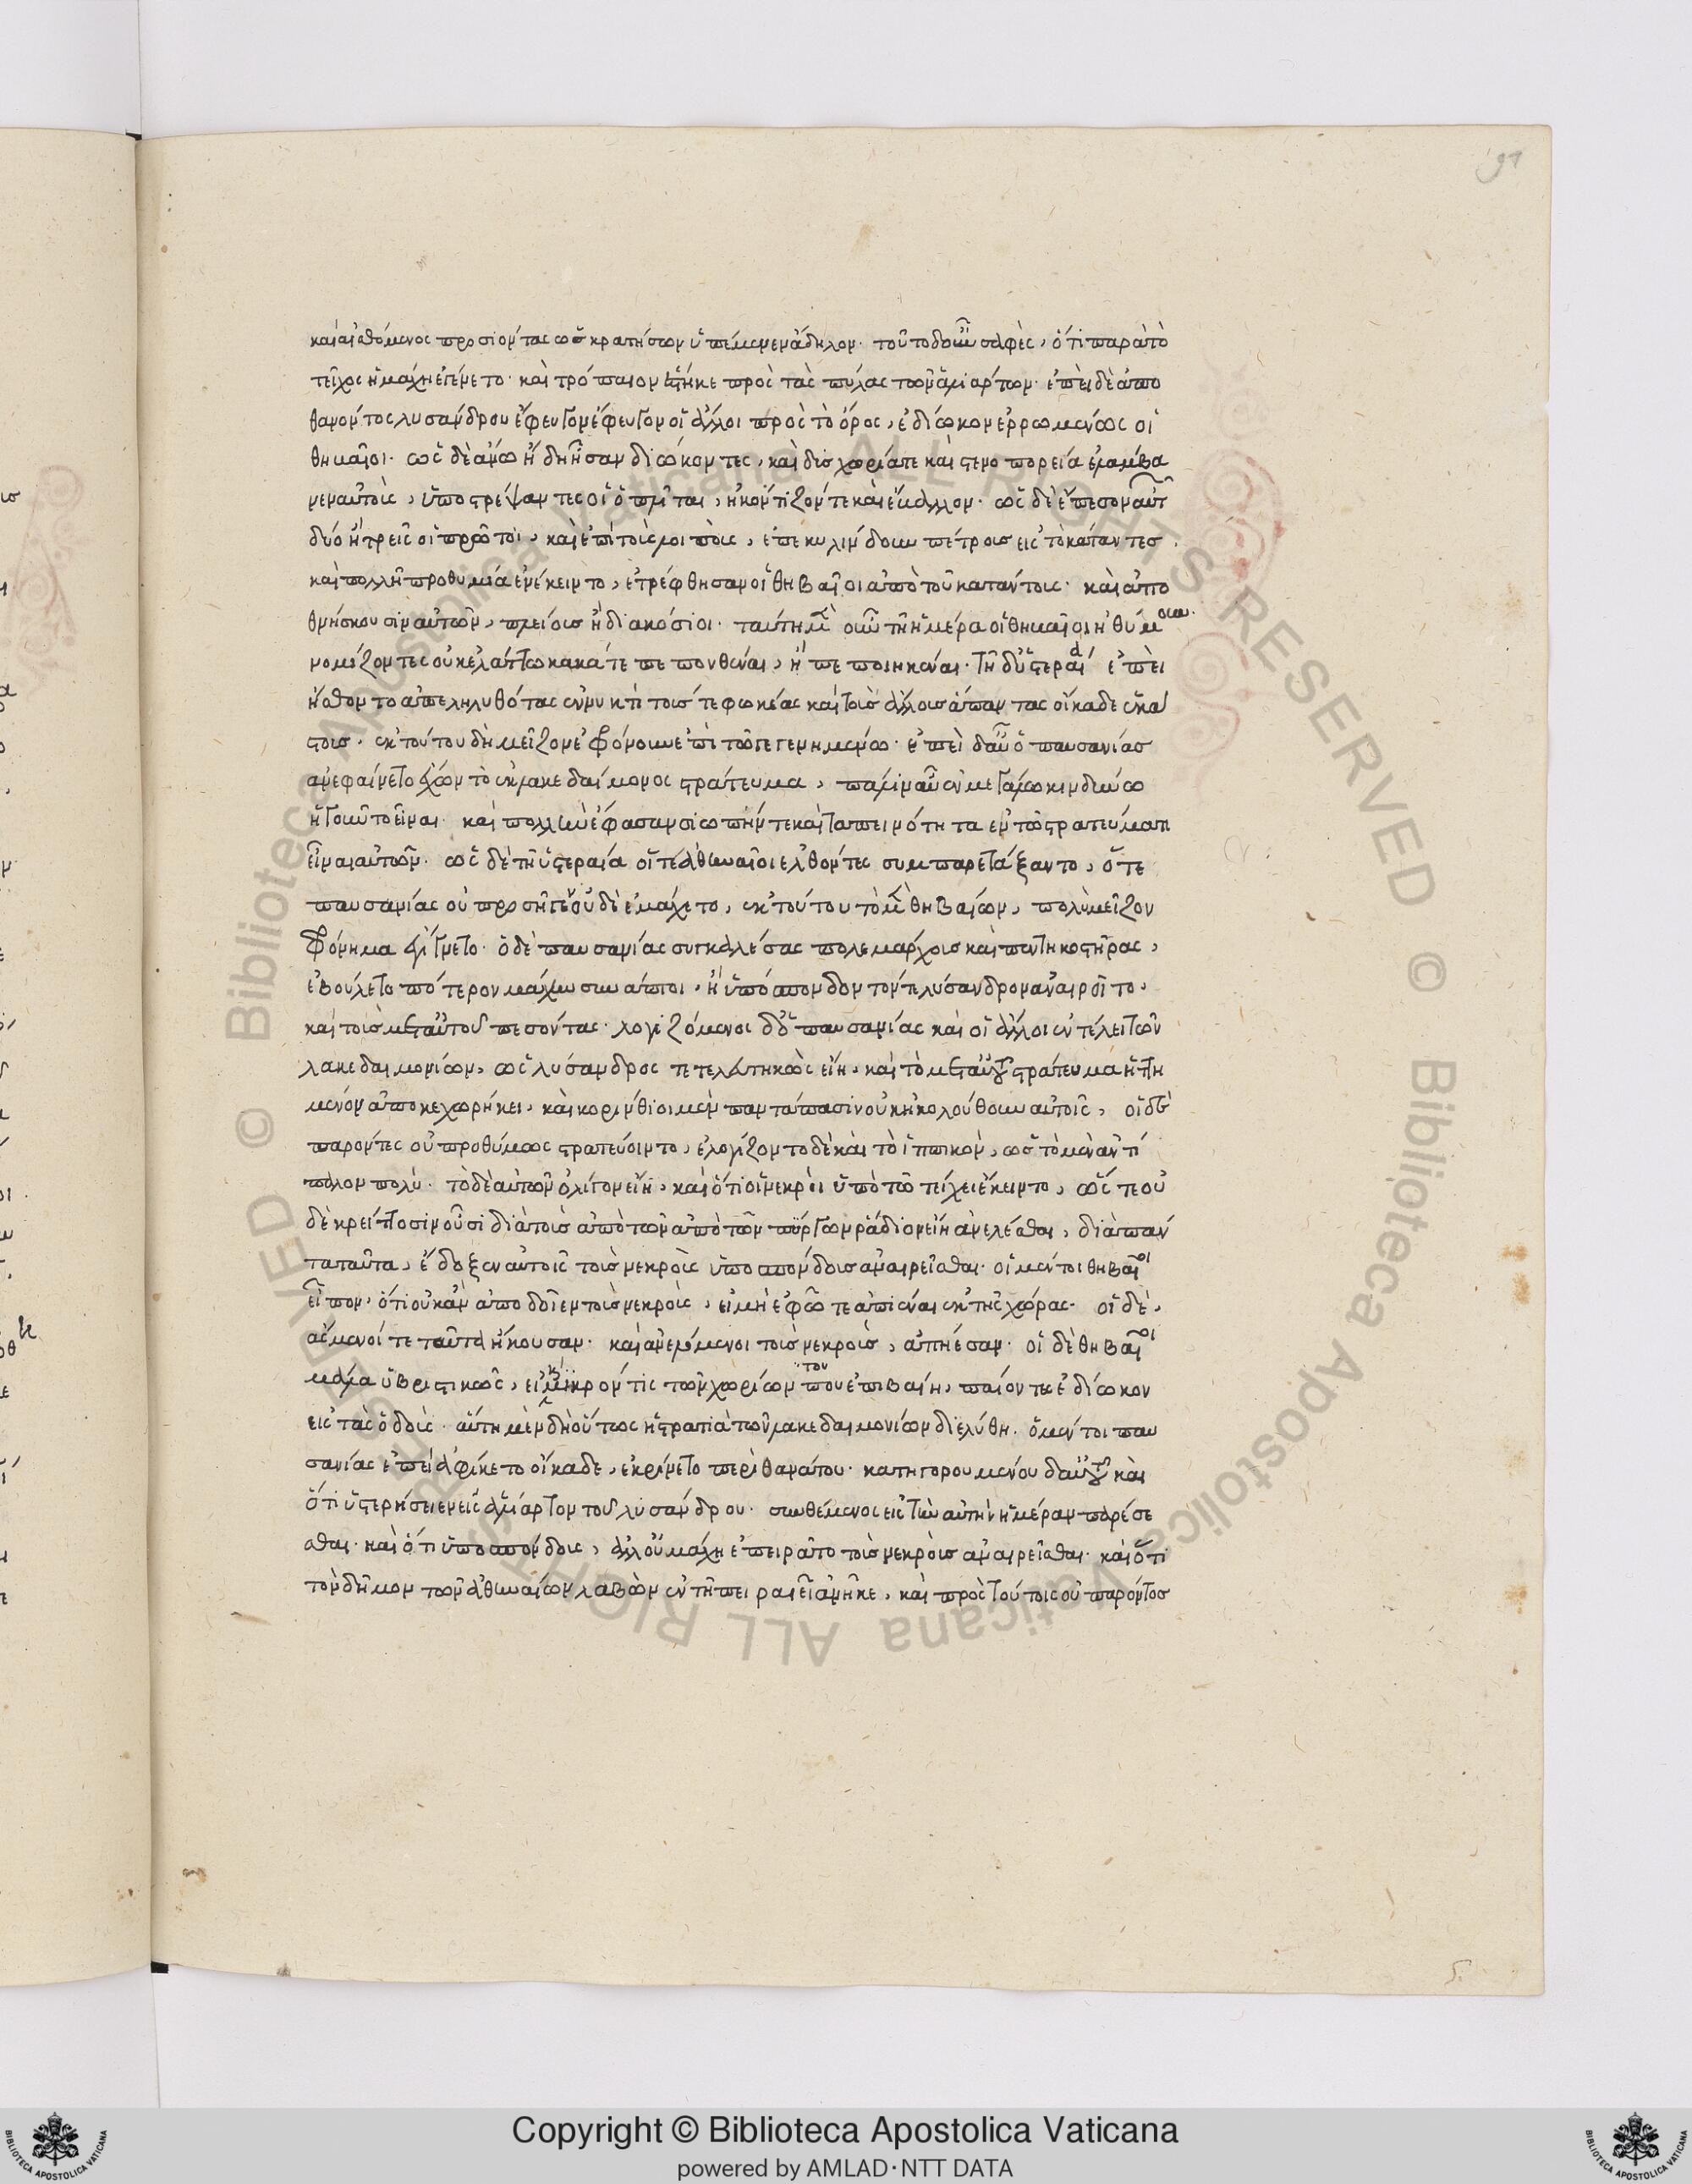 91
καὶ αἰσθόμενος προσιόντας ὡς κρατήσων ὑπέμενεν ἄδηλον. τοῦτο δ' οὖν σαφὲς, ὅτι παρὰ τὸ
τεῖχος ἡ μάχη ἐγένετο. καὶ τρόπαιον ἕστηκε πρὸς τὰς πύλας τῶν ἁλιαρτίων. ἐπεὶ δὲ ἀπο
θανόντος λυσάνδρου ἔφευγον ἔφευγον οἱ ἄλλοι πρὸς τὸ ὄρος, ἐδίωκον ἐρρωμένως οἱ
θηβαῖοι. ὡς δὲ ἄνω ἤδη ἦσαν διώκοντες, καὶ δυσχωρία τε καὶ στενοπορεία ἐλάμβα
νεν αὐτοὺς, ὑποστρέψαντες οἱ ὁπλῖται, ἠκόντιζόν τε καὶ ἔβαλλον. ὡς δὲ ἔπεσον αὐτῶν
δύο ἢ τρεῖς οἱ πρῶτοι, καὶ ἐπὶ τοὺς λοιποὺς, ἐπεκυλίνδουν πέτρους εἰς τὸ κάταντες
καὶ πολλῇ προθυμία ἐνέκειντο, ἐτρέφθησαν οἱ θηβαῖοι ἀπὸ τοῦ κατάντους. καὶ ἀπο
θνήσκουσιν αὐτῶν, πλείους ἢ διακόσιοι. ταύτῃ μὲν οὖν τῇ ἡμέρα οἱ θηβαῖοι ἠθύμουν.
νομίζοντες οὐκ ἐλάττω κακά τε πεπονθέναι, ἢ πεποιηκέναι. τῇ δ' ὑστεραία ἐπεὶ
ἤσθοντο ἀπεληλυθότας ἐν νυκτὶ τούς τε φωκέας καὶ τοὺς ἄλλους ἅπαντας οἴκαδε ἑκά
στους. ἐκ τούτου δὴ μεῖζον ἐφρόνουν ἐπὶ τῶ γεγενημένω. ἐπεὶ δ' αὖ ὁ παυσανίας
ἀνεφαίνετο ἔχων τὸ ἐκ λακεδαίμονος στράτευμα, πάλιν αὖ ἐν μεγάλω κινδύνω
ἡγοῦντο εἶναι. καὶ πολλὴν ἔφασαν σιωπήν τε καὶ ταπεινότητα ἐν τῶ στρατεύματι
εἶναι αὐτῶν. ὡς δὲ τῇ ὑστεραία οἵ τε ἀθηναῖοι ἐλθόντες συμπαρετάξαντο, ὅ τε
παυσανίας οὐ προσῆγεν οὐδὲ ἐμάχετο, ἐκ τούτου τὸ μὲν θηβαίων, πολὺ μεῖζον
φρόνημα ἐγίγνετο. ὁ δὲ παυσανίας συγκαλέσας πολεμάρχους καὶ πεντηκοστῆρας,
ἐβουλεύετο πότερον μάχην συνάπτοι, ἢ ὑπόσπονδον τόν τε λύσανδρον ἀναιροῖτο,
καὶ τοὺς μετ' αὐτοῦ πεσόντας. λογιζόμενοι δ' ὁ παυσανίας καὶ οἱ ἄλλοι ἐν τέλει τῶν
λακεδαιμονίων, ὡς λύσανδρος τετελευτηκὼς εἴη, καὶ τὸ μετ' αὐτοῦ στράτευμα ἡττη
μένον ἀποκεχωρήκει, καὶ κορίνθιοι μὲν παντάπασιν οὐκ ἠκολούθουν αὐτοῖς, οἱ δὲ
παρόντες οὐ προθύμως στρατεύοιντο, ἐλογίζοντο δὲ καὶ τὸ ἱππικὸν, ὡς τὸ μὲν ἀντί
παλον πολύ. τὸ δὲ αὐτῶν ὀλίγον εἴη, καὶ ὅτι οἱ νεκροὶ ὑπὸ τῶ τείχει ἔκειντο, ὥστε οὐ
δὲ κρείττοσιν οὖσι διὰ τοὺς ἀπὸ τῶν ἀπὸ τῶν πύργων ῥάδιον εἴη ἀνελέσθαι, διὰ πάν
τα ταῦτα, ἔδοξεν αὐτοῖς τοὺς νεκροὺς ὑποσπόνδους ἀναιρεῖσθαι. οἱ μέντοι θηβαῖοι
εἶπον, ὅτι οὐκ ἂν ἀποδοῖεν τοὺς νεκροὺς, εἰ μὴ ἐφ' ὧ τε ἀπιέναι ἐκ τῆς χώρας. οἱ δὲ,
ἄσμενοί τε ταῦτα ἤκουσαν. καὶ ἀνελόμενοι τοὺς νεκροὺς, ἀπῄεσαν. οἱ δὲ θηβαῖοι
μάλα ὑβριστικῶς, εἰ καὶ μικρόν τις τῶν χωρίων του που ἐπιβαίη, παίοντες ἐδίωκον
εἰς τὰς ὁδούς. αὕτη μὲν δὴ οὕτως ἡ στρατιὰ τῶν λακεδαιμονίων διελύθη. ὁ μέντοι παυ
σανίας ἐπεὶ ἀφίκετο οἴκαδε, ἐκρίνετο περὶ θανάτου. κατηγορουμένου δ' αὐτοῦ καὶ
ὅτι ὑστερήσειεν εἰς ἁλίαρτον τοῦ λυσάνδρου. συνθέμενοι εἰς τὴν αὐτὴν ἡμέραν παρέσε
σθαι. καὶ ὅτι ὑποσπόνδους, ἀλλ' οὐ μάχῃ ἐπειρᾶτο τοὺς νεκροὺς ἀναιρεῖσθαι. καὶ ὅτι
τὸν δῆμον τῶν ἀθηναίων λαβὼν ἐν τῇ πειραιεῖ ἀνῆκε, καὶ πρὸς τούτοις οὐ παρόντος
Copyright © Biblioteca Apostolica Vaticana
powered by AMLAD·NTT DATA